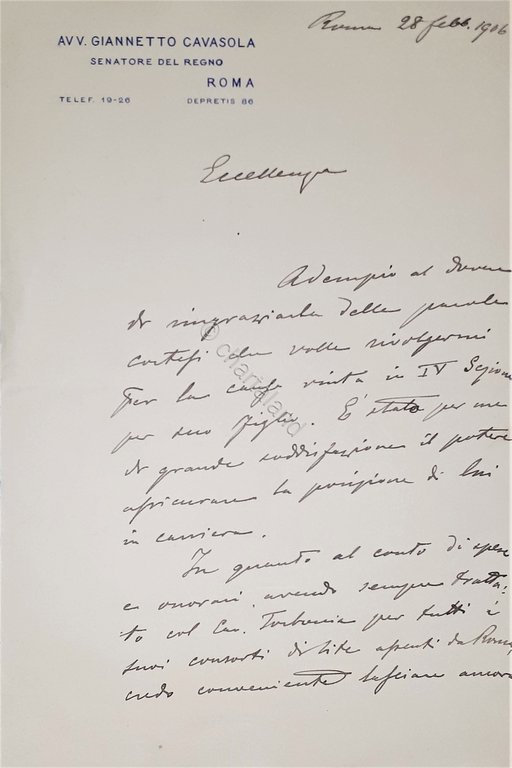 Roma 28 febb. 1906
AVV. GIANNETTO CAVASOLA
SENATORE DEL REGNO
ROMA
TELEF. 19-26 DEPRETIS 86
Eccellenza
Adempio al dovere
di ringraziarla delle parole
cortesi che volle rivolgermi
per la causa vinta in IV Sezione
per suo figlio. E' stato per me
di grande soddisfazione il potere
assicurare la posizione di lui
in carriera.
In quanto al conto di spese
e onorari, avendo sempre tratta=
to col Cav. per tutti i
suoi consorti di lite assenti da Roma,
credo conveniente lasciare ancora
© chartaland